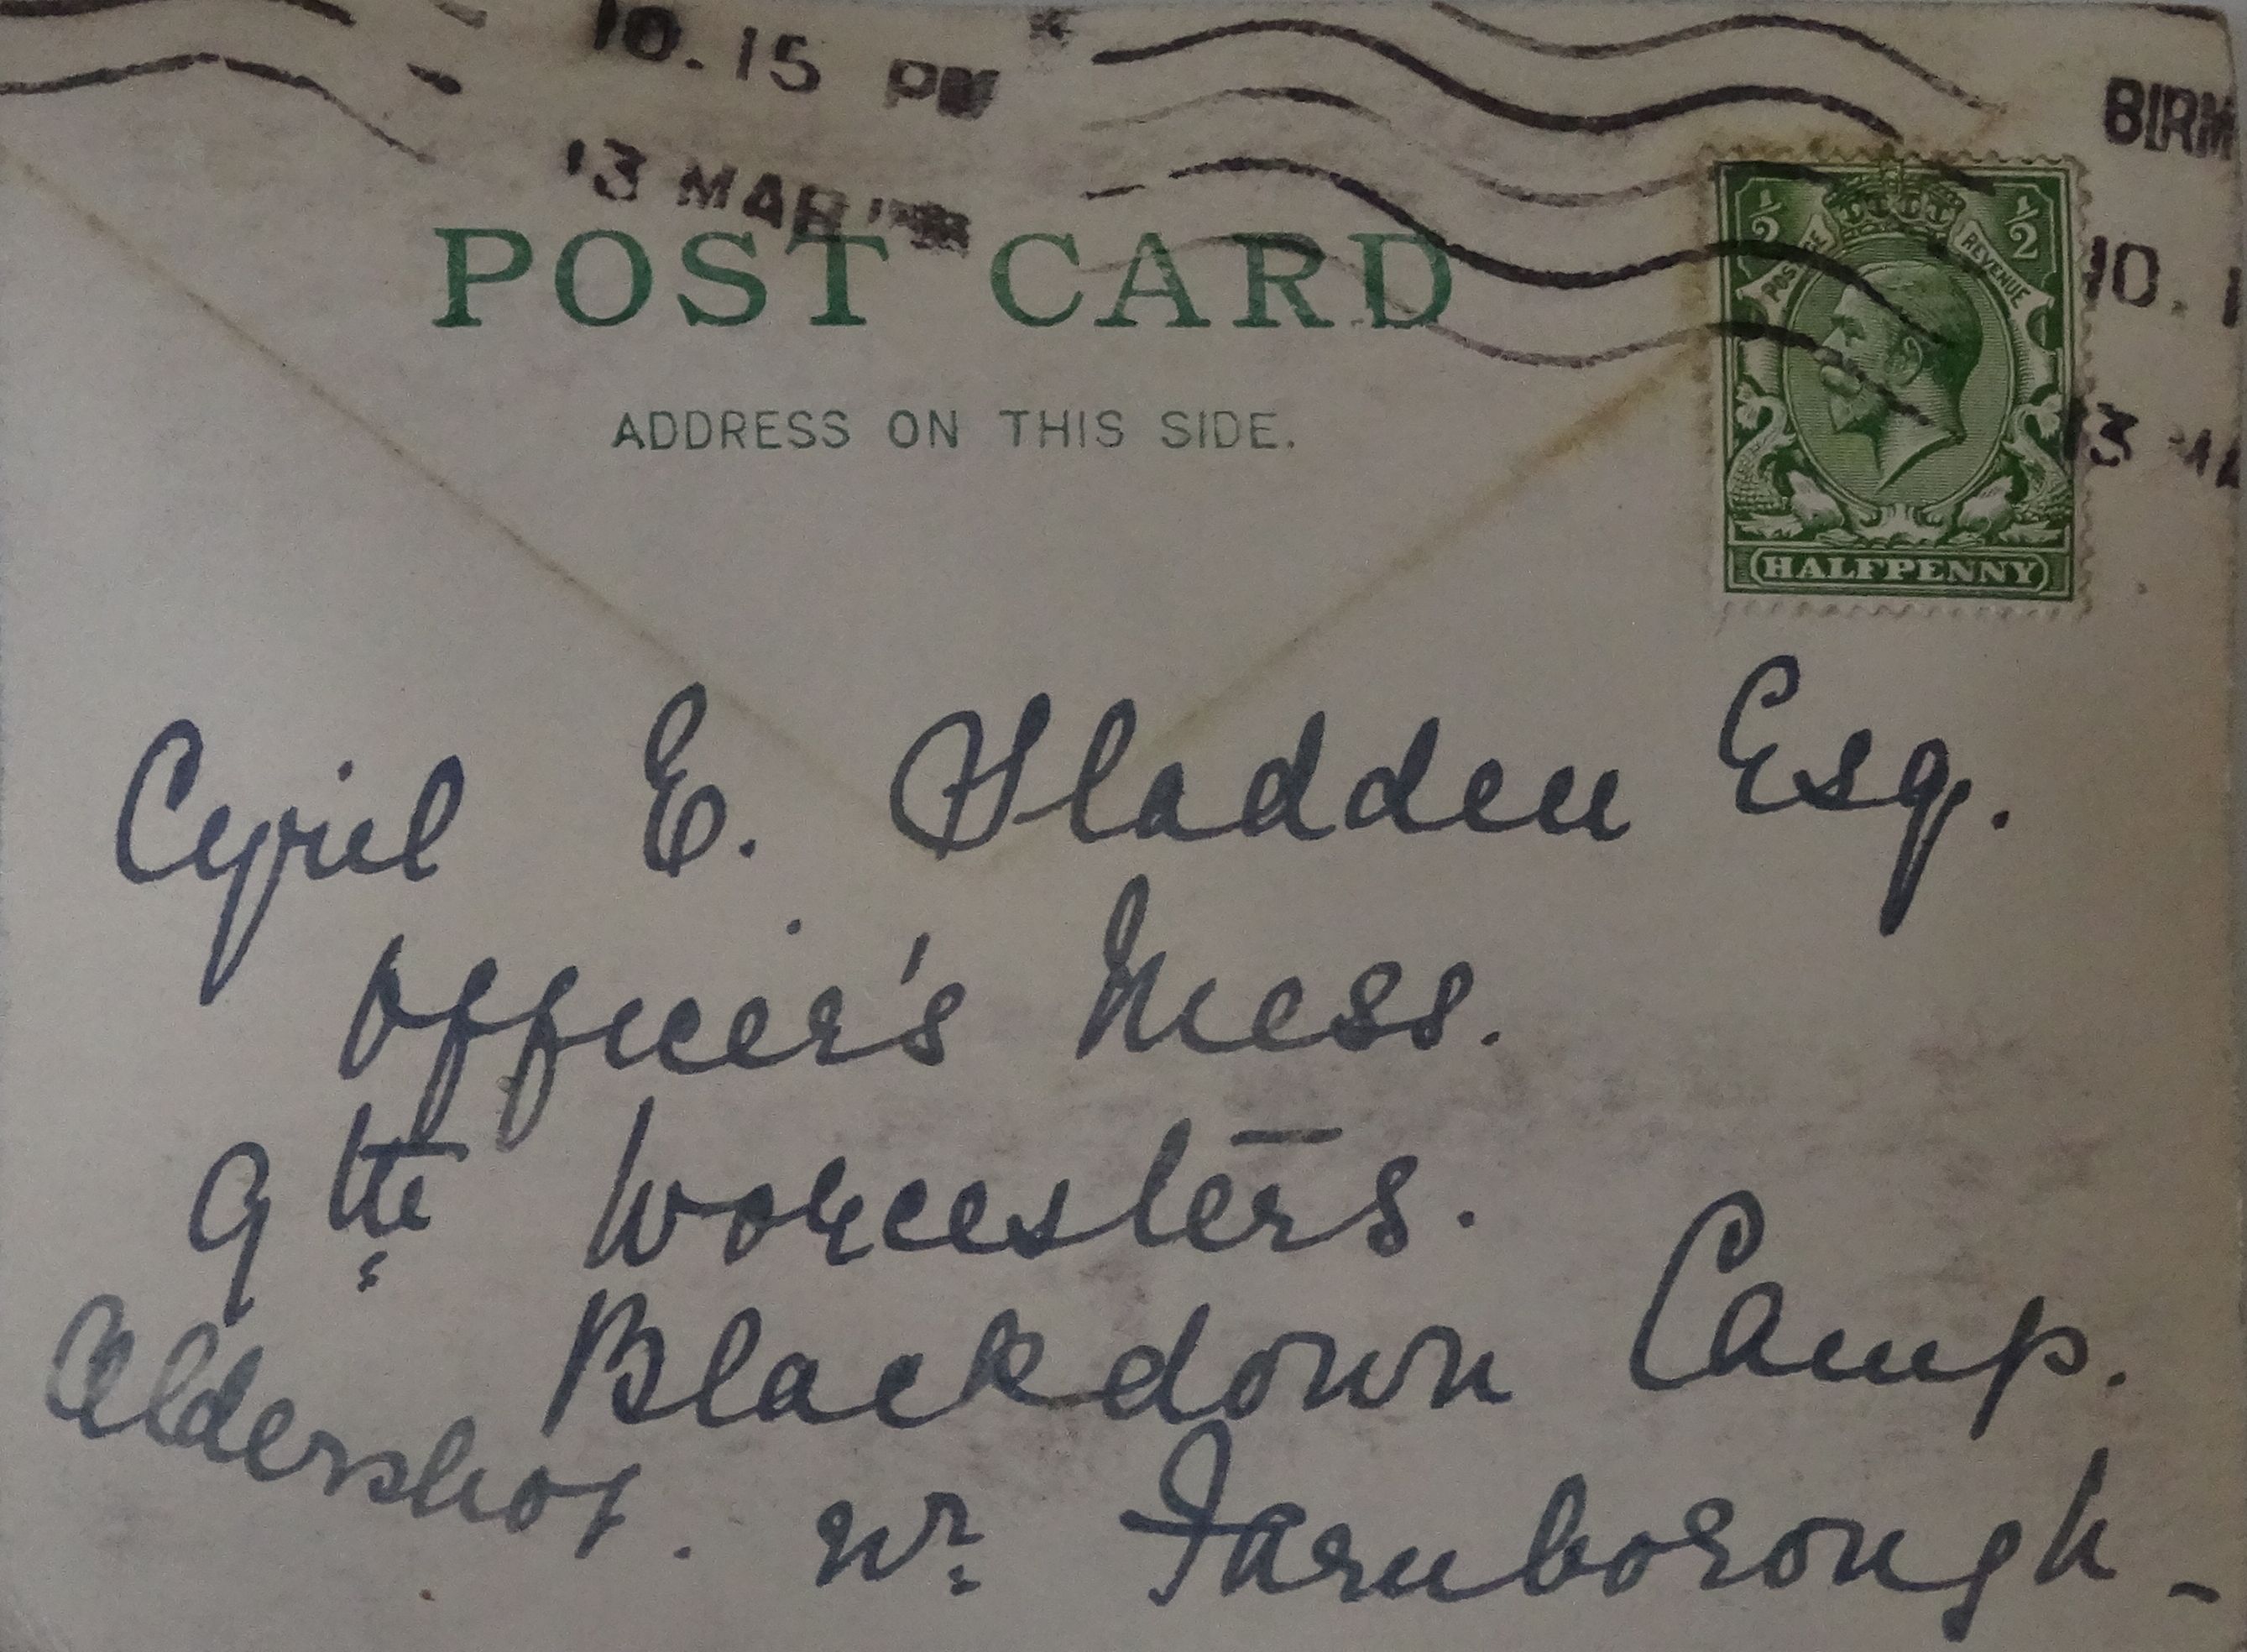 10.15 PM
13 MAR
BIRM
10. 1
13 MA
POST CARD
ADDRESS ON THIS SIDE.
½ POSTAGE REVENUE ½
HALFPENNY
Cyril E. Sladden Esq.
Officer's Mess.
9th Worcesters.
Blackdown Camp.
Aldershot. Nr. Farnborough -